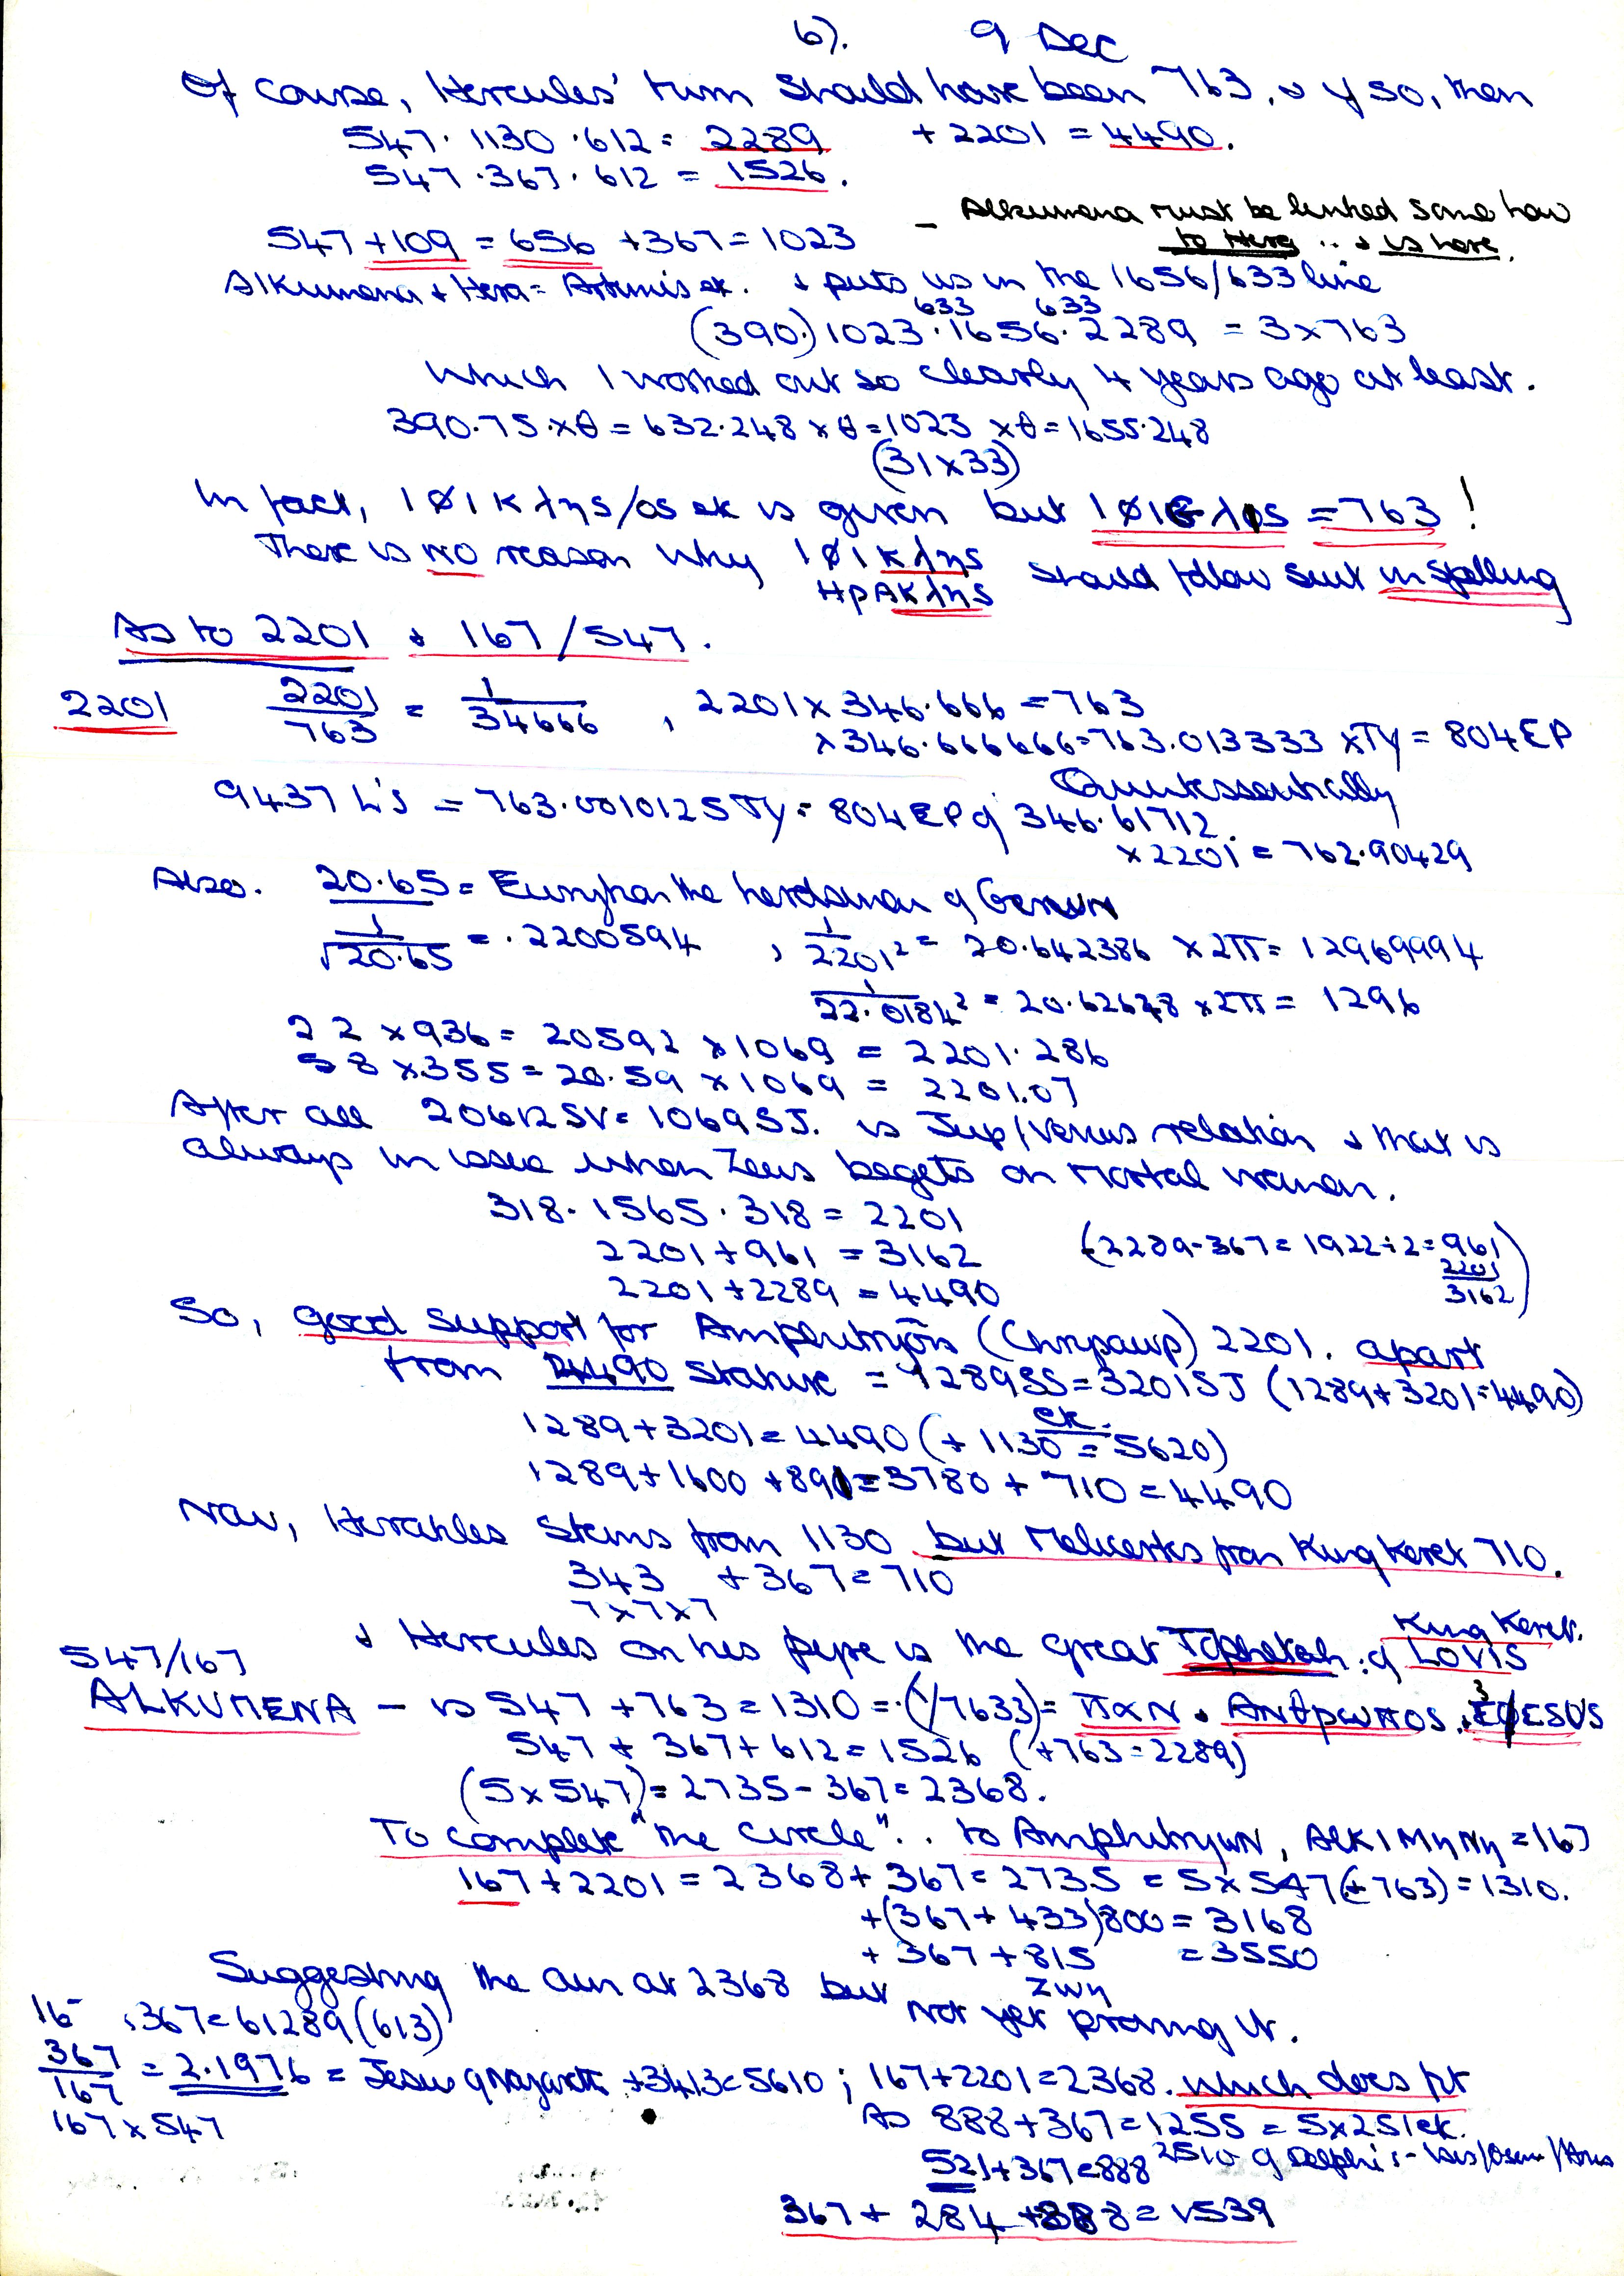 6). 9 Dec
Of course, Hercules' turn should have been 763, & if so, then
547 · 1130 · 612 = 2289 + 2201 = 4490.
547 · 367 · 612 = 1526.
- Alkumena must be linked some how
to Hera .. & is here.
547 + 109 = 656 + 367 = 1023
Alkumena + Hera = Artemis ek. & puts us in the 1656/633 line
633 633
(390.) 1023 · 1656 · 2289 = 3 x 763
which I worked out so clearly 4 years ago at least.
390.75 x θ = 632.248 x θ = 1023 x θ = 1655.248
(31 x 33)
In fact, ιφικληs/os ek is given but = 763 !
There is no reason why ιφικληs should follow suit in spelling
HρAκληs
As to 2201 & 167/547.
2201 2201/763 = 1/34666 , 2201 x 346.666 = 763
x 346.666666 = 763.013333 x TY = 804 EP
Quintessentially
9437 L's = 763.0010125 TY = 804 EP of 346.61712.
x 2201 = 762.90429
Also. 20.65 = the herdsman of Geryon
1/√20.65 = .2200594 , 1/2201² = 20.642386 x 2π = 12969994
1/22.0184² = 20.62648 x 2π = 1296
22 x 936 = 20592 x 1069 = 2201.286
58 x 355 = 20.59 x 1069 = 2201.07
After all 20612 SV = 1069 SJ. is Jup/Venus relation & that is
always in issue when Zeus begets on mortal women.
318 · 1565 · 318 = 2201
2201 + 961 = 3162 (2289 - 367 = 1922 ÷ 2 = 961
2201
3162)
2201 + 2289 = 4490
So, good support for Amphitryōn (Chrysawρ) 2201. apart
from 4490 stature = 1289 SS = 3201 SJ (1289 + 3201 = 4490)
ek.
1289 + 3201 = 4490 (+ 1130 = 5620)
1289 + 1600 + 891 = 3780 + 710 = 4490
Now, Herakles stems from 1130 but Melicertes from King Keret 710.
343 + 367 = 710
7 x 7 x 7
King Keret.
& Hercules on his pyre is the great Tophetah : of LOVIS
547/167
ALKUMENA - is 547 + 763 = 1310 = (1/7633) = παN & ANθρωποs, EφESUS
547 + 367 + 612 = 1526 (+ 763 = 2289)
(5 x 547) = 2735 - 367 = 2368.
To complete "the circle" .. to AmphitrywN, ALKIMηNη = 167
167 + 2201 = 2368 + 367 = 2735 = 5 x 547 (+ 763) = 1310.
+ (367 + 433) 800 = 3168
+ 367 + 815 = 3550
Zwη
Suggesting the aim at 2368 but not yet proving it.
367 = 61289 (613)
367/167 = 2.1976 = Jesus of Nazareth + 3413 = 5610 ; 167 + 2201 = 2368. which does fit
167 x 547
As 888 + 367 = 1255 = 5 x 251 ek.
521 + 367 = 888 2510 of Delphi :-
367 + 284 + 888 = 1539